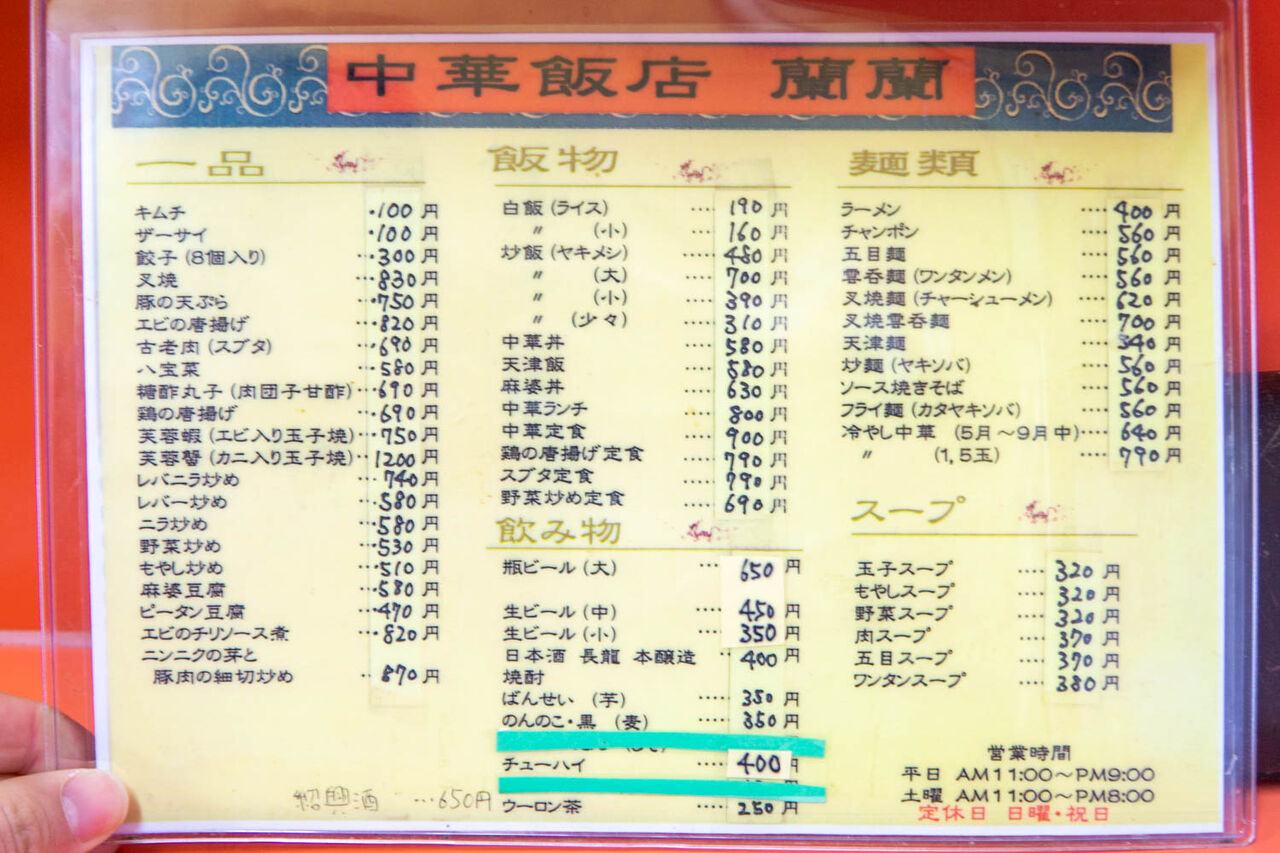 中華飯店 蘭蘭
一品
キムチ ・100円
ザーサイ ・100円
餃子(8個入り) …300円
叉焼 …830円
豚の天ぷら …750円
エビの唐揚げ …820円
古老肉(スブタ) …690円
八宝菜 …580円
糖酢丸子(肉団子甘酢)…690円
鶏の唐揚げ …690円
芙蓉蝦(エビ入り玉子焼)…750円
芙蓉蟹(カニ入り玉子焼)…1200円
レバニラ炒め …740円
レバー炒め …580円
ニラ炒め …580円
野菜炒め …530円
もやし炒め …510円
麻婆豆腐 …580円
ピータン豆腐 …470円
エビのチリソース煮 …820円
ニンニクの芽と
豚肉の細切炒め …870円
紹興酒 …650円
飯物
白飯(ライス) ‥‥190円
〃 (小) ‥‥160円
炒飯(ヤキメシ) ‥‥480円
〃 (大) ‥‥700円
〃 (小) ‥‥390円
〃 (少々) ‥‥310円
中華丼 ‥‥580円
天津飯 ‥‥580円
麻婆丼 ‥‥630円
中華ランチ ‥‥800円
中華定食 ‥‥900円
鶏の唐揚げ定食 ‥‥790円
スブタ定食 ‥‥790円
野菜炒め定食 ‥‥690円
飲み物
瓶ビール(大) … 650円
生ビール(中) ‥‥ 450円
生ビール(小) ‥‥ 350円
日本酒 長龍 本醸造 ‥‥400円
焼酎
ばんせい (芋) ‥‥・350円
のんのこ・黒 (麦) ‥‥・350円
チューハイ ‥‥ 400円
ウーロン茶 ‥‥ 250円
麺類
ラーメン ‥‥400円
チャンポン ‥‥560円
五目麺 ‥‥560円
雲呑麺(ワンタンメン) ‥‥560円
叉焼麺(チャーシューメン) ‥‥620円
叉焼雲呑麺 ‥‥700円
天津麺 ‥‥540円
炒麺(ヤキソバ) ‥‥560円
ソース焼きそば ‥‥560円
フライ麺(カタヤキソバ) ‥‥560円
冷やし中華 (5月~9月中)‥‥640円
〃 (1,5玉) ‥‥790円
スープ
玉子スープ ‥‥320円
もやしスープ ‥‥320円
野菜スープ ‥‥320円
肉スープ ‥‥370円
五目スープ ‥‥370円
ワンタンスープ ‥‥380円
営業時間
平日 AM11:00~PM9:00
土曜 AM11:00~PM8:00
定休日 日曜・祝日